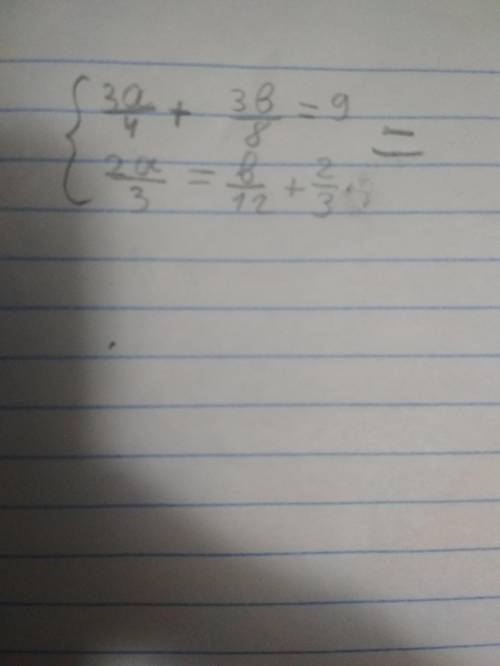 { 3a/4 + 3b/8 = 9 =
2a/3 = b/12 + 2/3